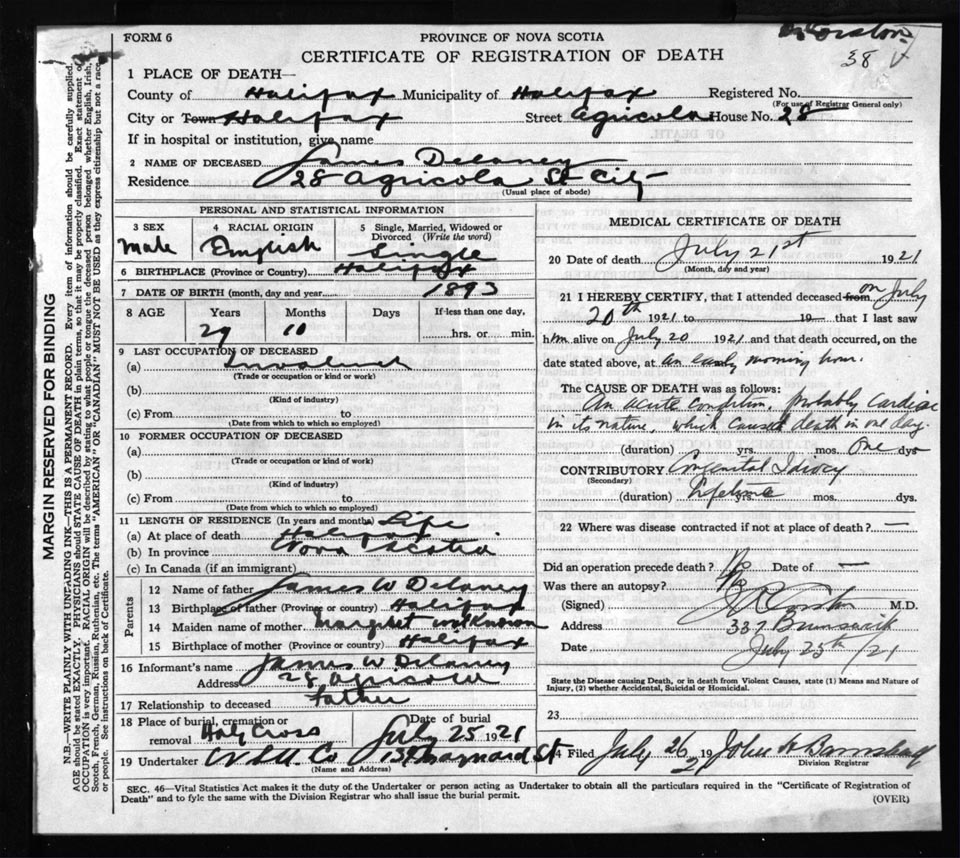 FORM 6
PROVINCE OF NOVA SCOTIA
CERTIFICATE OF REGISTRATION OF DEATH
38
1 PLACE OF DEATH—
County of Halifax Municipality of Halifax Registered No.
(For use of Registrar General only)
City or Town Halifax Street Agricola House No. 28
If in hospital or institution, give name
2 NAME OF DECEASED James Delaney
Residence 28 Agricola St City
(Usual place of abode)
PERSONAL AND STATISTICAL INFORMATION
3 SEX
Male
4 RACIAL ORIGIN
English
5 Single, Married, Widowed or Divorced (Write the word)
Single
6 BIRTHPLACE (Province or Country) Halifax
7 DATE OF BIRTH (month, day and year 1893
8 AGE Years Months Days If less than one day,
29 10 hrs. or min.
9 LAST OCCUPATION OF DECEASED
(a)
(Trade or occupation or kind or work)
(b)
(Kind of industry)
(c) From to
(Date from which to which so employed)
10 FORMER OCCUPATION OF DECEASED
(a)
(Trade or occupation or kind or work)
(b)
(Kind of industry)
(c) From to
(Date from which to which so employed)
11 LENGTH OF RESIDENCE (In years and months) Life
(a) At place of death Halifax
(b) In province Nova Scotia
(c) In Canada (if an immigrant)
Parents
12 Name of father James W Delaney
13 Birthplace of father (Province or country) Halifax
14 Maiden name of mother Margret unKnown
15 Birthplace of mother (Province or country) Halifax
16 Informant's name James W Delaney
Address 28 Agricola
17 Relationship to deceased Father
18 Place of burial, cremation or removal Holy Cross Date of burial July 25 1921
19 Undertaker Co Maynard St
(Name and Address)
MEDICAL CERTIFICATE OF DEATH
20 Date of death July 21st 1921
(Month, day and year)
21 I HEREBY CERTIFY, that I attended deceased from on July
20th 1921 to 19 that I last saw
him alive on July 20 1921 and that death occurred, on the
date stated above, at An early morning hour.
The CAUSE OF DEATH was as follows:
An acute condition, probably cardiac
in its nature, which caused death in one day.
(duration) yrs. mos. One dys
CONTRIBUTORY Congenital Idiocy
(Secondary)
(duration) Lifetime mos. dys.
22 Where was disease contracted if not at place of death? —
Did an operation precede death? No Date of —
Was there an autopsy? No
(Signed) M.D.
Address 337 Brunswick
Date July 25th /21
State the Disease causing Death, or in death from Violent Causes, state (1) Means and Nature of
Injury, (2) whether Accidental, Suicidal or Homicidal.
23
Filed July 26 1921
Division Registrar
SEC. 46—Vital Statistics Act makes it the duty of the Undertaker or person acting as Undertaker to obtain all the particulars required in the "Certificate of Registration of
Death" and to fyle the same with the Division Registrar who shall issue the burial permit.
(OVER)
MARGIN RESERVED FOR BINDING
N.B.—WRITE PLAINLY WITH UNFADING INK—THIS IS A PERMANENT RECORD. Every item of information should be carefully supplied.
AGE should be stated EXACTLY. PHYSICIANS should STATE CAUSE OF DEATH in plain terms, so that it may be properly classified. Exact statement of
OCCUPATION is very important. RACIAL ORIGIN will be described by stating to what people or tongue the deceased person belonged whether English, Irish,
Scotch, French, German, Russian, Ruthenian, etc. The terms "AMERICAN" OR "CANADIAN" MUST NOT BE USED as they express citizenship but not a race
or people. See instructions on back of Certificate.